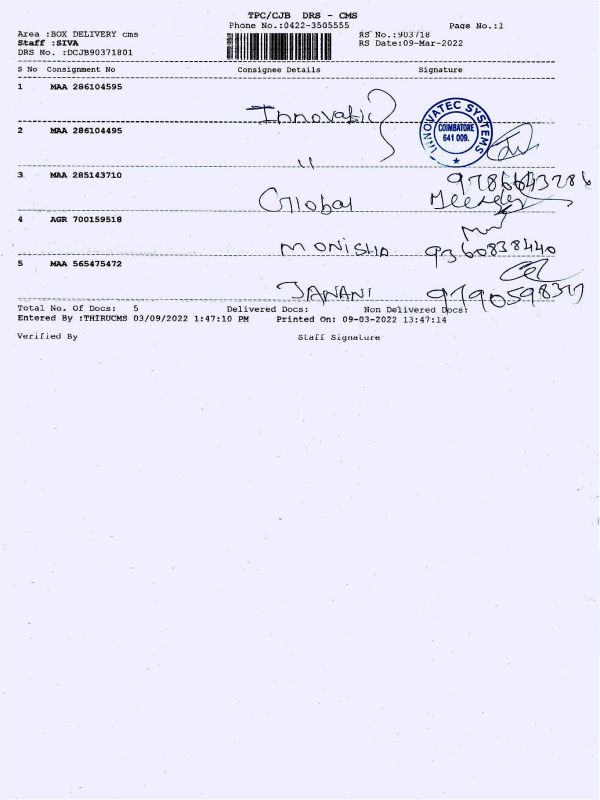 TPC/CJB DRS - CMS
Phone No.:0422-3505555 Page No.:1
Area :BOX DELIVERY cms RS No.:903718
Staff :SIVA RS Date:09-Mar-2022
DRS No. :DCJB90371801
S No Consignment No Consignee Details Signature
1 MAA 286104595
Innovatic
INNOVATEC SYSTEMS
COIMBATORE
641 009.
2 MAA 286104495
"
3 MAA 285143710
Global
4 AGR 700159518
MONISHA 9360838440
5 MAA 565475472
JANANI
Total No. Of Docs: 5 Delivered Docs: Non Delivered Docs:
Entered By :THIRUCMS 03/09/2022 1:47:10 PM Printed On: 09-03-2022 13:47:14
Verified By Staff Signature